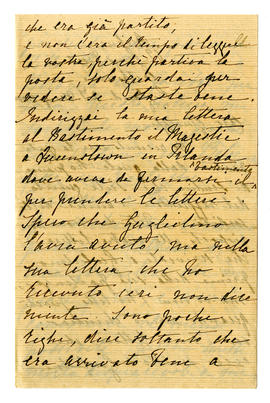 che era già partito,
e non c'era il tempo di legger
la vostra perchè partiva la
posta, solo guardai per
vedere se state bene.
Indirizzai la mia lettera
al Bastimento il Majestic
a Queenstown in Irlanda
dove aveva da fermarsi il bastimento
per prendere le lettere.
Spero che Guglielmo
l'avrà avuto, ma nella
sua lettera che ho
ricevuto ieri non dice
niente. Sono poche
righe, dice soltanto che
era arrivato bene a